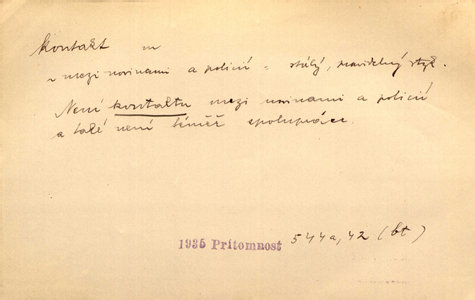 Kontakt m
mezi novinami a policií = stálý, pravidelný styk.
Není kontaktu mezi novinami a policií
a také není téměř spolupráce.
1935 Přítomnost 544a, 42 (bt)